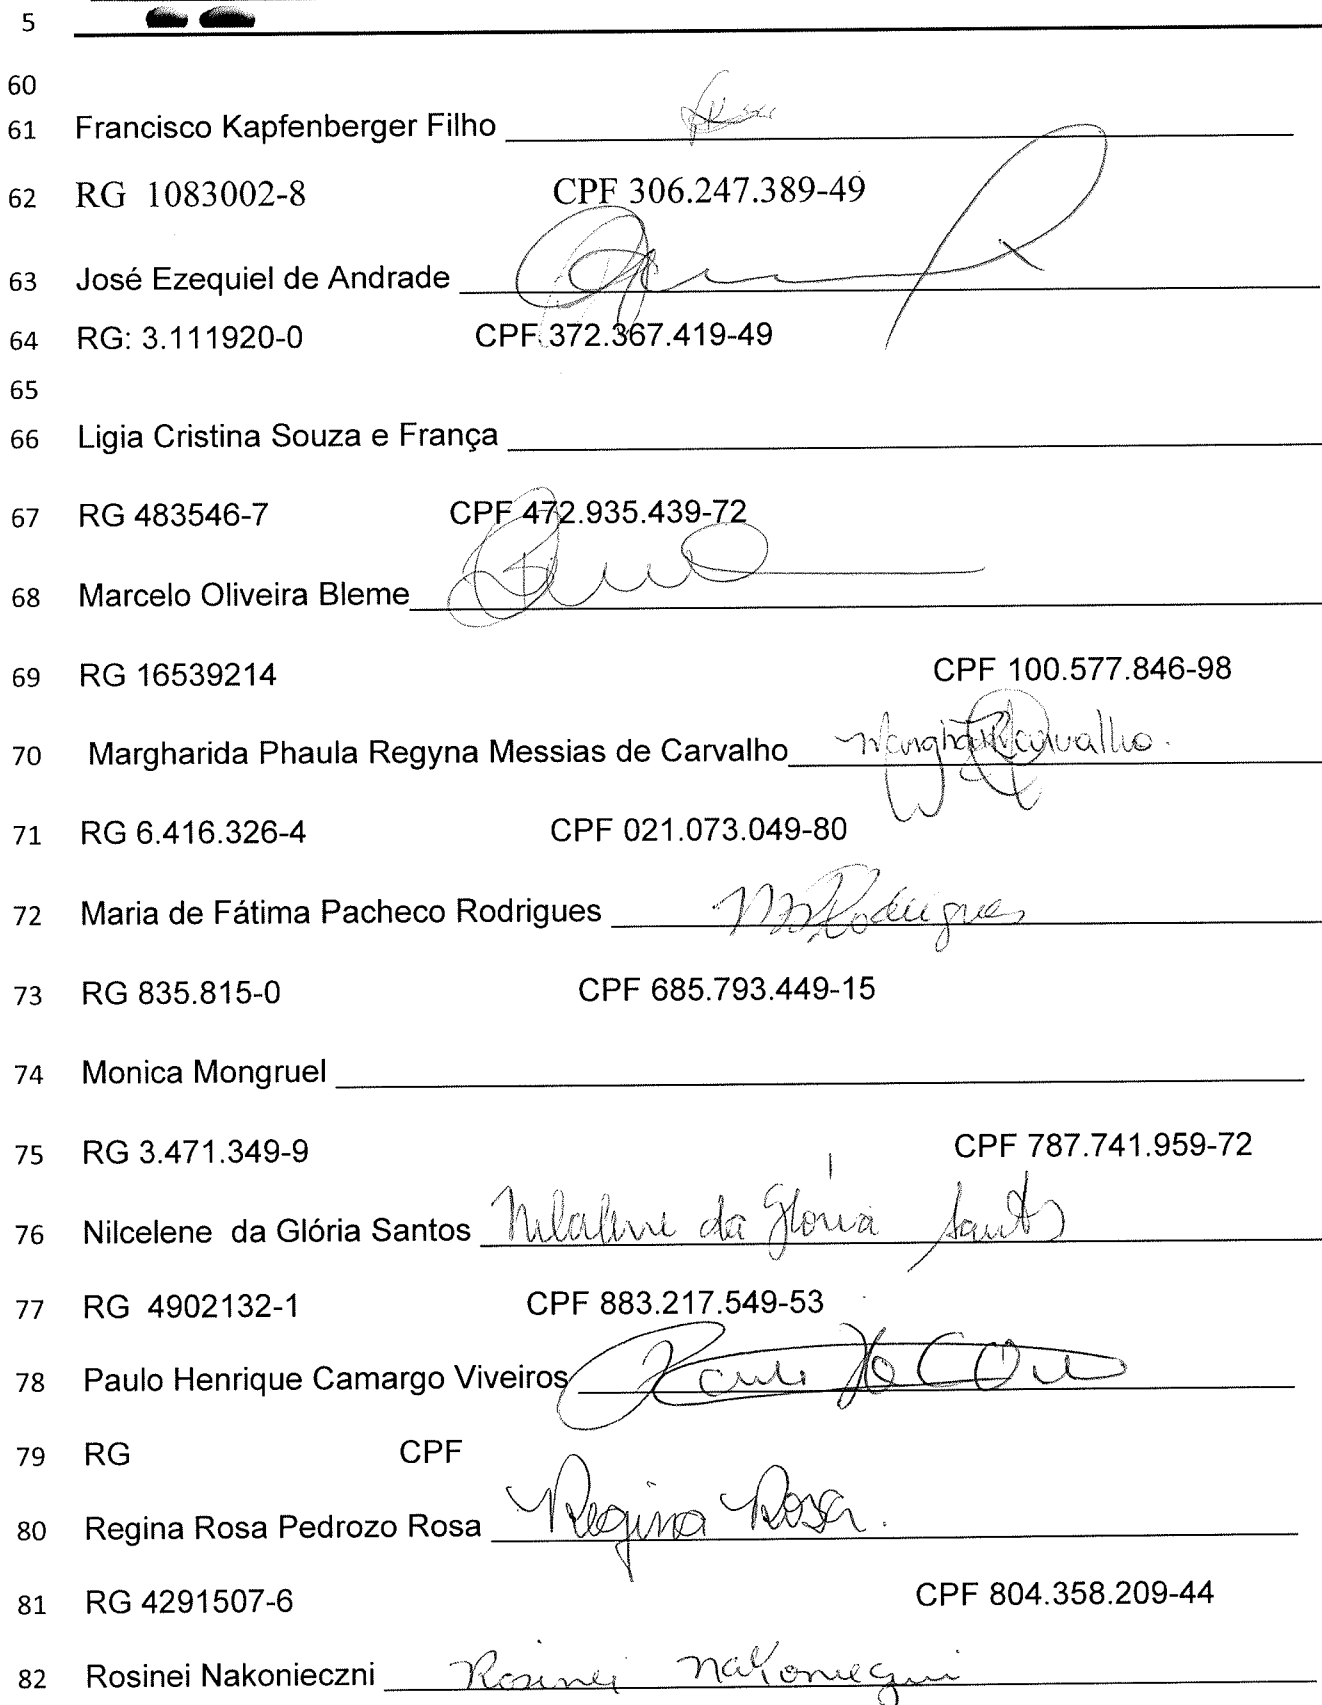 5
60
61 Francisco Kapfenberger Filho
62 RG 1083002-8 CPF 306.247.389-49
63 José Ezequiel de Andrade
64 RG: 3.111920-0 CPF 372.367.419-49
65
66 Ligia Cristina Souza e França
67 RG 483546-7 CPF 472.935.439-72
68 Marcelo Oliveira Bleme
69 RG 16539214 CPF 100.577.846-98
70 Margharida Phaula Regyna Messias de Carvalho Carvalho.
71 RG 6.416.326-4 CPF 021.073.049-80
72 Maria de Fátima Pacheco Rodrigues Rodrigues
73 RG 835.815-0 CPF 685.793.449-15
74 Monica Mongruel
75 RG 3.471.349-9 CPF 787.741.959-72
76 Nilcelene da Glória Santos da Glória Santos
77 RG 4902132-1 CPF 883.217.549-53
78 Paulo Henrique Camargo Viveiros
79 RG CPF
80 Regina Rosa Pedrozo Rosa Regina Rosa.
81 RG 4291507-6 CPF 804.358.209-44
82 Rosinei Nakonieczni Rosinei